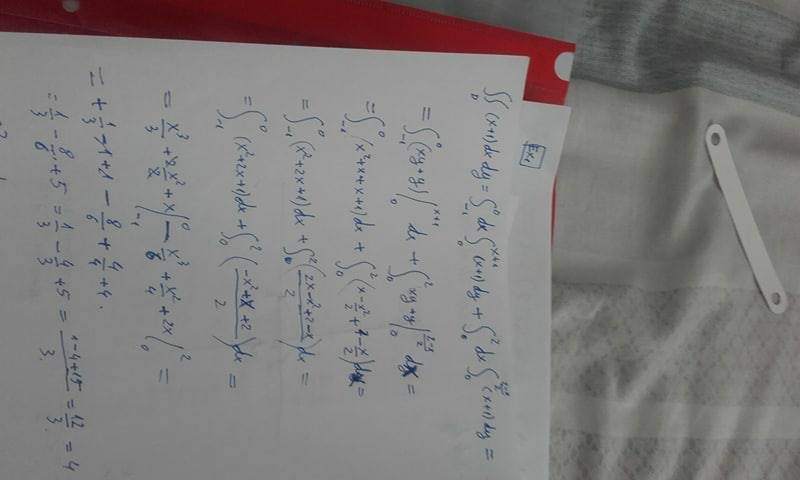 Ex1
∬_D (x+1)dx dy = ∫_{-1}^0 dx ∫_0^{x+1} (x+1)dy + ∫_0^2 dx ∫_0^{(2-x)/2} (x+1)dy =
= ∫_{-1}^0 (xy+y)|_0^{x+1} dx + ∫_0^2 (xy+y)|_0^{(2-x)/2} dx =
= ∫_{-1}^0 (x²+x+x+1)dx + ∫_0^2 (x - x²/2 + 1 - x/2)dx =
= ∫_{-1}^0 (x²+2x+1)dx + ∫_0^2 ((2x-x²+2-x)/2)dx =
= ∫_{-1}^0 (x²+2x+1)dx + ∫_0^2 ((-x²+x+2)/2)dx =
= x³/3 + 2x²/2 + x|_{-1}^0 - x³/6 + x²/4 + 2x|_0^2 =
= +1/3 - 1 + 1 - 8/6 + 4/4 + 4.
= 1/3 - 8/6 + 5 = 1/3 - 4/3 + 5 = (1-4+15)/3 = 12/3 = 4